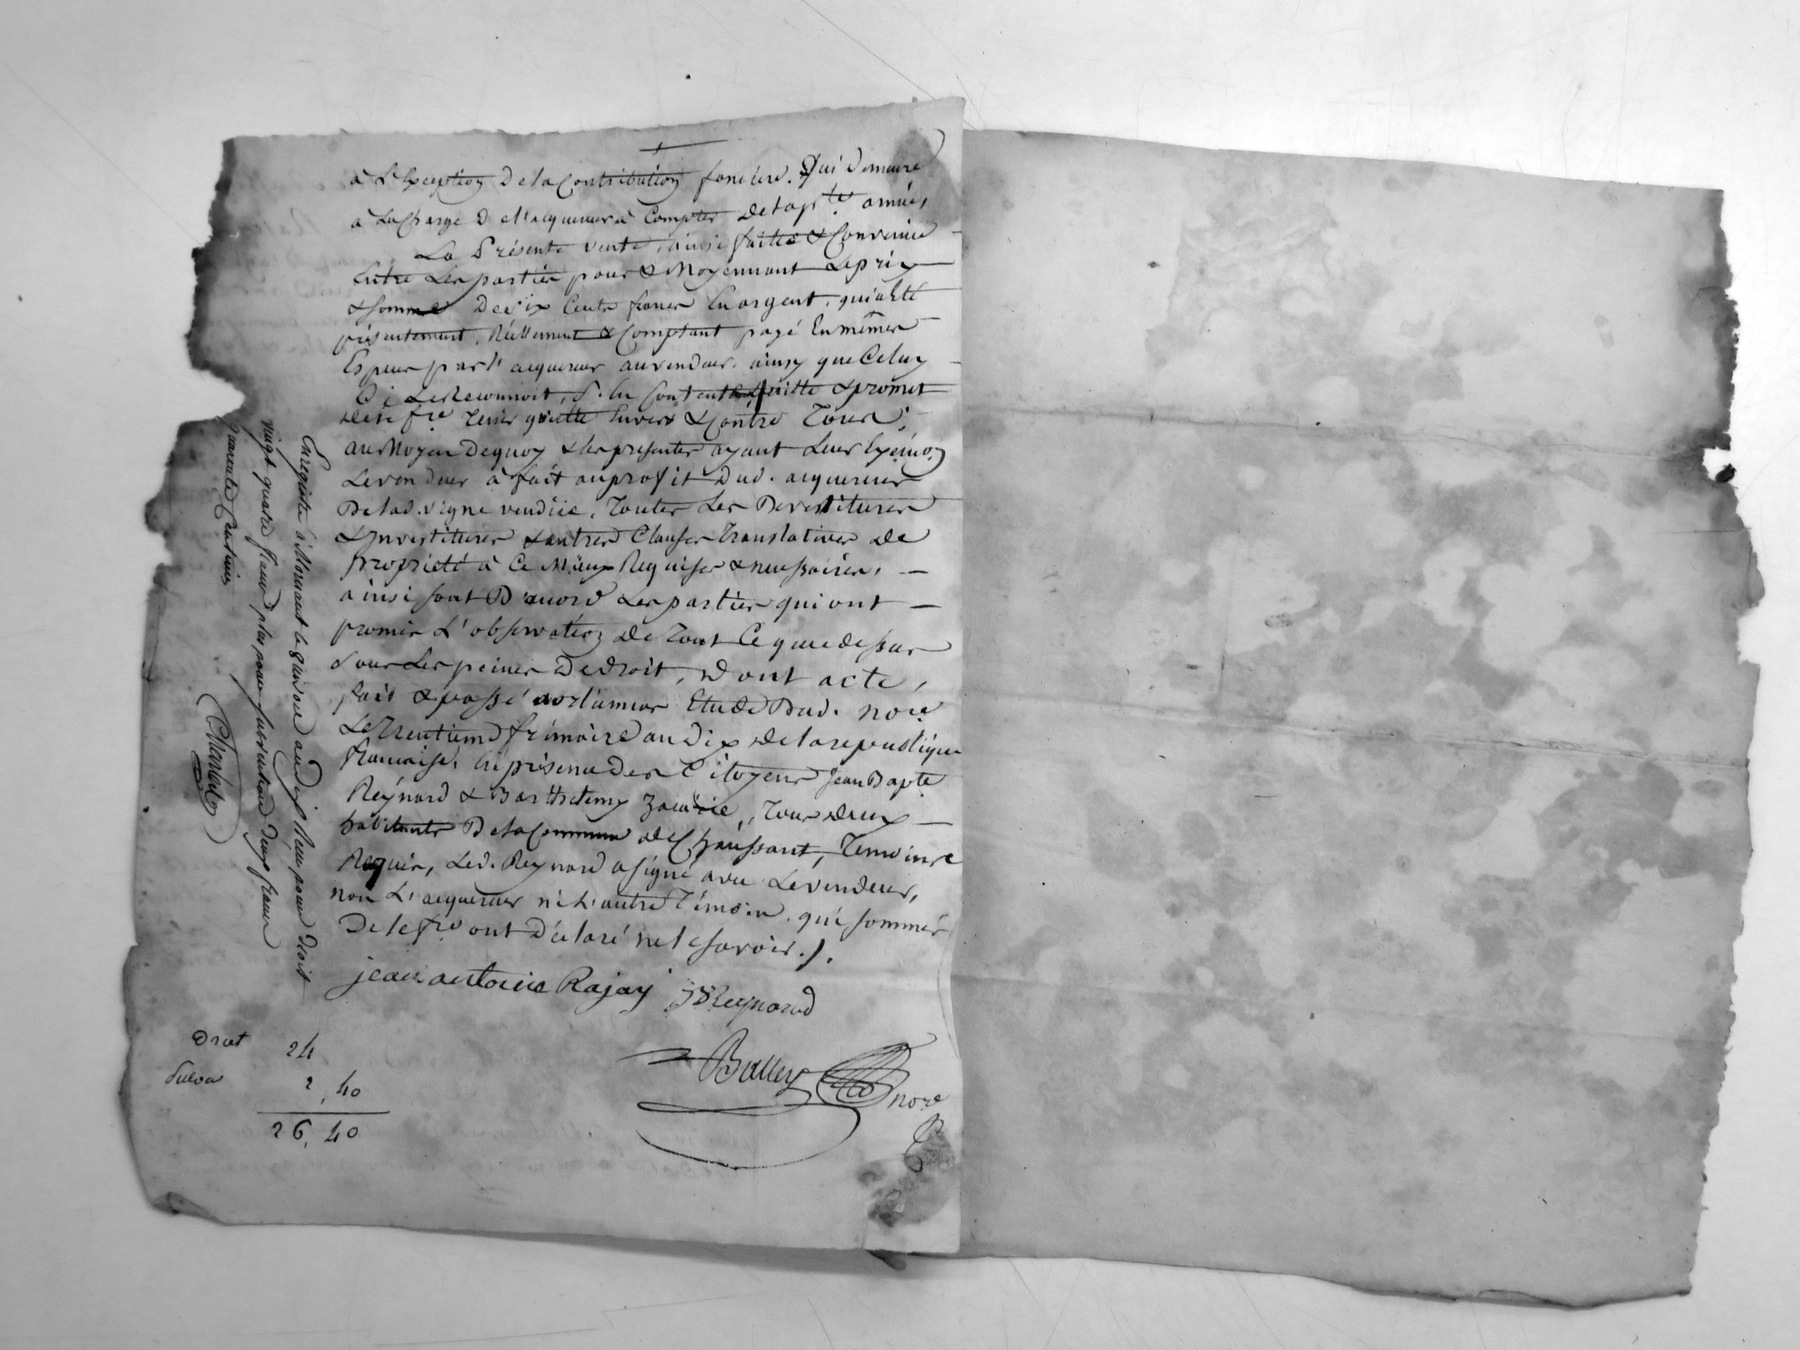 à L'Exception De la Contribution fonciere. Qui demeure
à La Charge De l'acquereur à Compter de la pnte. année,
La Présente vente, ainsi faitte & Convenüe
Entre Les parties pour & Moyennant Le prix
& somme De six Cents francs En argent, qui a Eté
présentement, Réellement & Comptant payé En mêmes
Especes par l'acquereur au vendeur, ainsy que Celuy
Ci Le Reconnoit, s'en Contente, quitte & promet
tenir quitte Envers & Contre Tous;
au Moyen de quoy & les presentes ayant Leur Exéon.
Le vendeur à fait au profit Dud. acquereur
De lad. vigne vendüe, Toutes Les Devestitures
& Investitures & autres Clauses Translatives de
propriété à Ce Mieux Requises & necessaires,
ainsi sont D'acord Les parties qui ont
promis L'observation de Tout Ce que dessus
sous Les peines De droit, Dont acte,
fait & passé à Etude Dud. nore
Le Trentieme frimaire an Dix de la republique
francaise, En présence des Citoyens Jean Bapte
Reynard & Barthelemy Zacarie, Tous deux
habitants De la Commune de Chaussant, Temoins
Requis, Led. Reynard a signé avec Le vendeur,
non L'acquereur ni L'autre Témoin. qui sommés
De le fre. ont déclaré ne le savoir./.
jean antoine Rajay JBReynard
Balley nore
Enregistré à Mornant le quinze an dix Reçu pour droit
vingt quatre francs plus pour subvention deux francs
quarante Centimes
droit 24
subvon 2,40
26,40